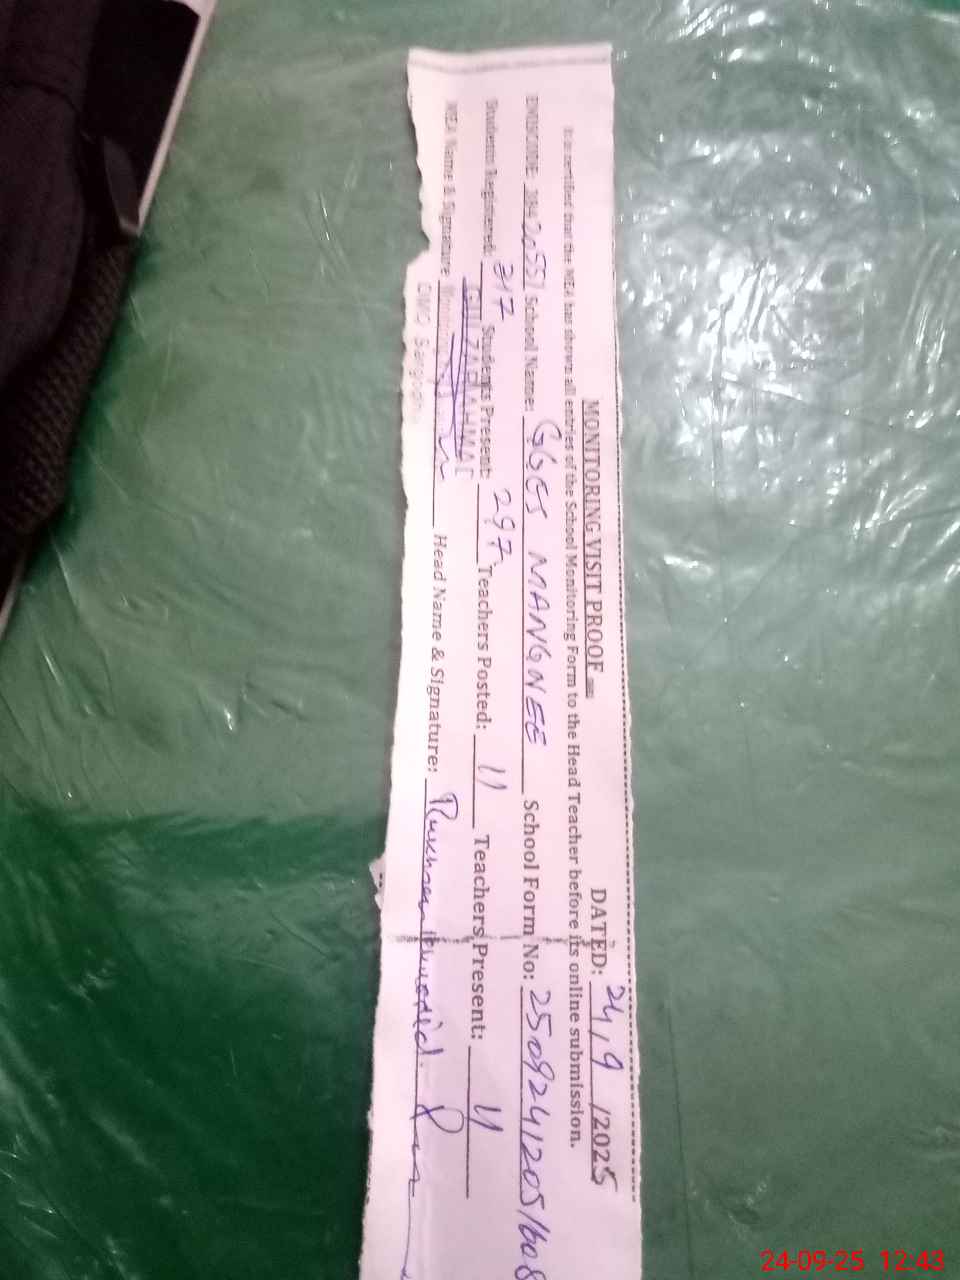 MONITORING VISIT PROOF DATED: 24/9/2025
It is certified that the MEA has shown all entries of the School Monitoring Form to the Head Teacher before its online submission.
EMISCODE: School Name: GGES MANGNEE School Form No: 2509241205
Student Registered: 317 Students Present: 297 Teachers Posted: 11 Teachers Present: 11
MEA Name & Signature: Head Name & Signature:
24-09-25 12:43